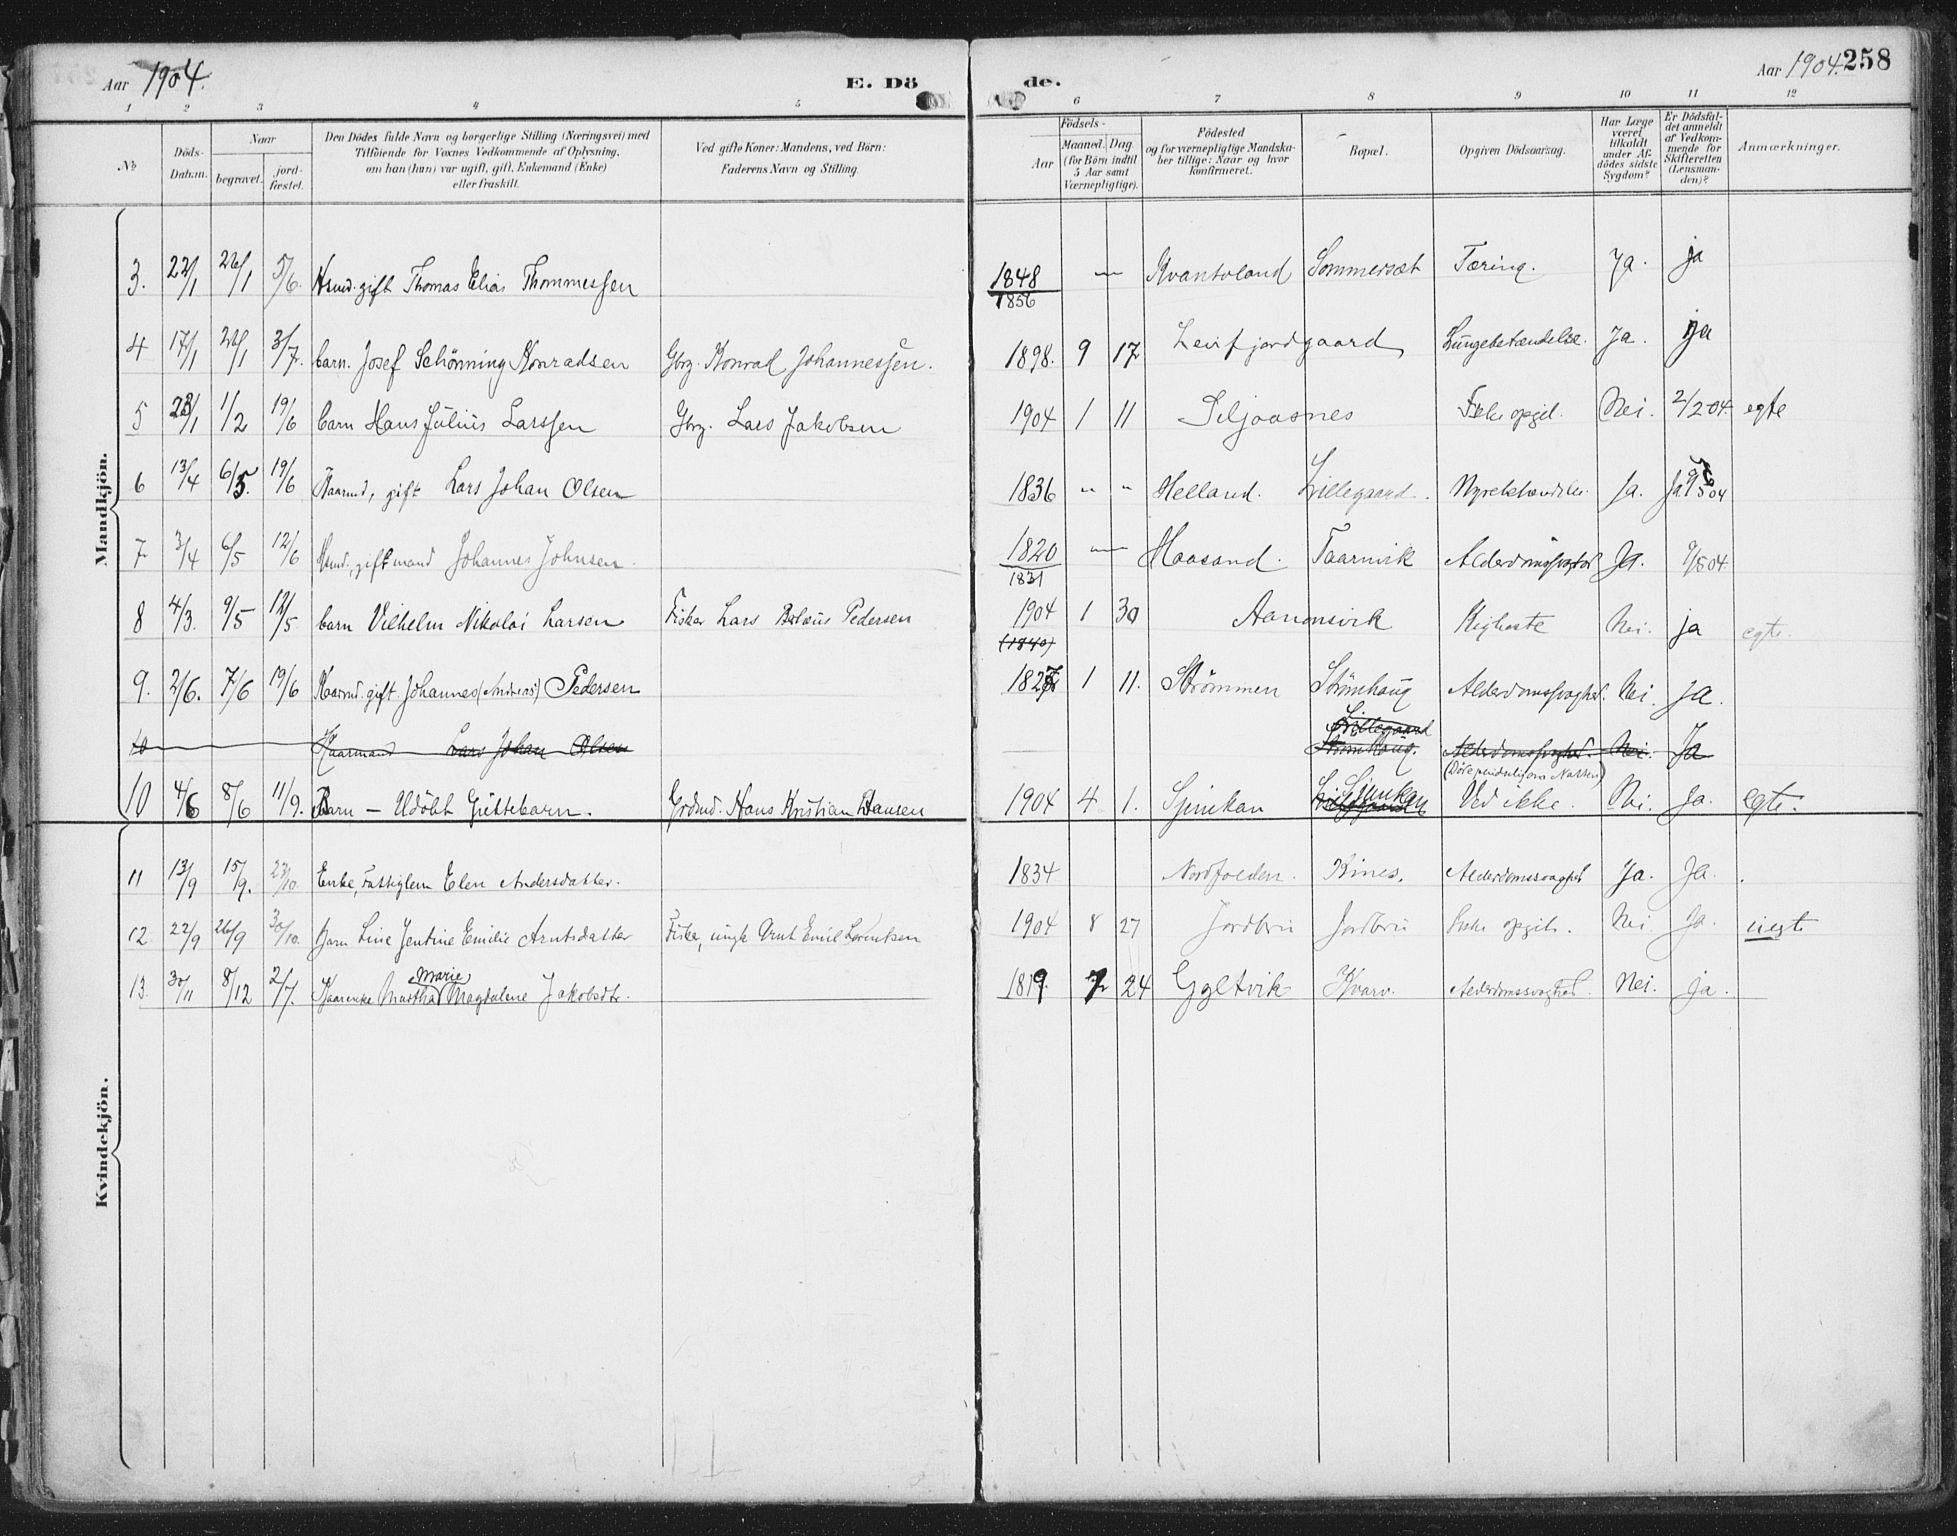 Aar 1904. E. Dö
de. Aar 1904. 258
1 2 3 4 5 6 7 8 9 10 11 12
No
Döds-Datum.
Naar
begravet. jordfæstet.
Den Dödes fulde Navn og borgerlige Stilling (Næringsvei) med
Tilföiende for Voxnes Vedkommende af Oplysning,
om han (hun) var ugift, gift, Enkemand (Enke)
eller fraskilt.
Ved gifte Koner: Mandens, ved Börn:
Faderens Navn og Stilling.
Födsels-
Aar
Maaned. Dag.
(for Börn indtil
5 Aar samt
Værnepligtige).
Födested
og for værnepligtige Mandska-
ber tillige: Naar og hvor
konfirmeret.
Bopæl.
Opgiven Dödsaarsag.
Har Læge
været
tilkaldt
under Af-
dödes sidste
Sygdom?
Er Dödsfal-
det anmeldt
af Vedkom-
mende for
Skifteretten
(Lensman-
den)?
Anmærkninger.
Mandkjön.
3. 22/1 26/1 5/6. Hsmd. gift Thomas Elias Thommessen 1848 1856 Kvantoland Sommersæt Tæring. Ja. ja
4 17/1 26/1 3/7. barn. Josef Schönning Konradsen Gbrg. Konrad Johannessen. 1898. 9 17 Leirfjordgaard Lungebetændelse. Ja. ja
5 23/1 1/2 19/6 barn Hans Julius Larssen Gbrg. Lars Jakobsen 1904 1 11 Siljaasnes Ikke opgit. Nei. 2/2 04. egte
6 13/4 6/5. 19/6 Kaarmd, gift Lars Johan Olsen 1836 " " Helland. Lillegaard. Nyrebetændelse. Ja. Ja
7 3/4 6/5 12/6 Hsmd., giftmand Johannes Johnsen. 1820 1831 Haasand. Taarnvik Alderdomssvaghed Ja. 9/5 04
8 4/3. 9/5 12/5 barn Vilhelm Nikolai Larsen Fisker Lars Pedersen 1904 1 30 Aanonsvik Kighoste Nei. ja egte.
(1840)
9. 2/6. 7/6 19/6 Kaarmd. gift. Johannes (Andreas) Pedersen 1827 1 11. Strömmen Strömhaug Alderdomssvaghed. Nei. Ja.
10 Kaarmand Lars Johan Olsen Lillegaard Strömhaug. Alderdomssvaghed. Nei. Ja
10 4/6 8/6 11/9. Barn – Udöbt Guttebarn. Grdmd. Hans Kristian Hansen 1904 4 1. Sjunkan Lillegaard Sjunkan Ved ikke. Nei. Ja. egte.
Kvindekjön.
11 13/9 15/9. 23/10. Enke, Fattiglem Elen Andersdatter. 1834 Nordfolden. Kines. Alderdomssvaghed Ja. Ja.
12 22/9 26/9 30/10. Barn Line Jentine Emilie Arntsdatter Fisker, ungk. Arnt Emil Lorentsen 1904 8 27 Jordbru Jordbru Ikke opgit. Nei. Ja. uegte
13. 30/11 8/12 2/7. Kaarenke Martha Marie Magdalene Jakobsdtr. 1819. 7 24 Eggetvik Kvarv. Alderdomssvaghed. Nei. ja.